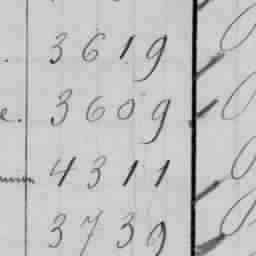 3619
e. 3609
4311
3739